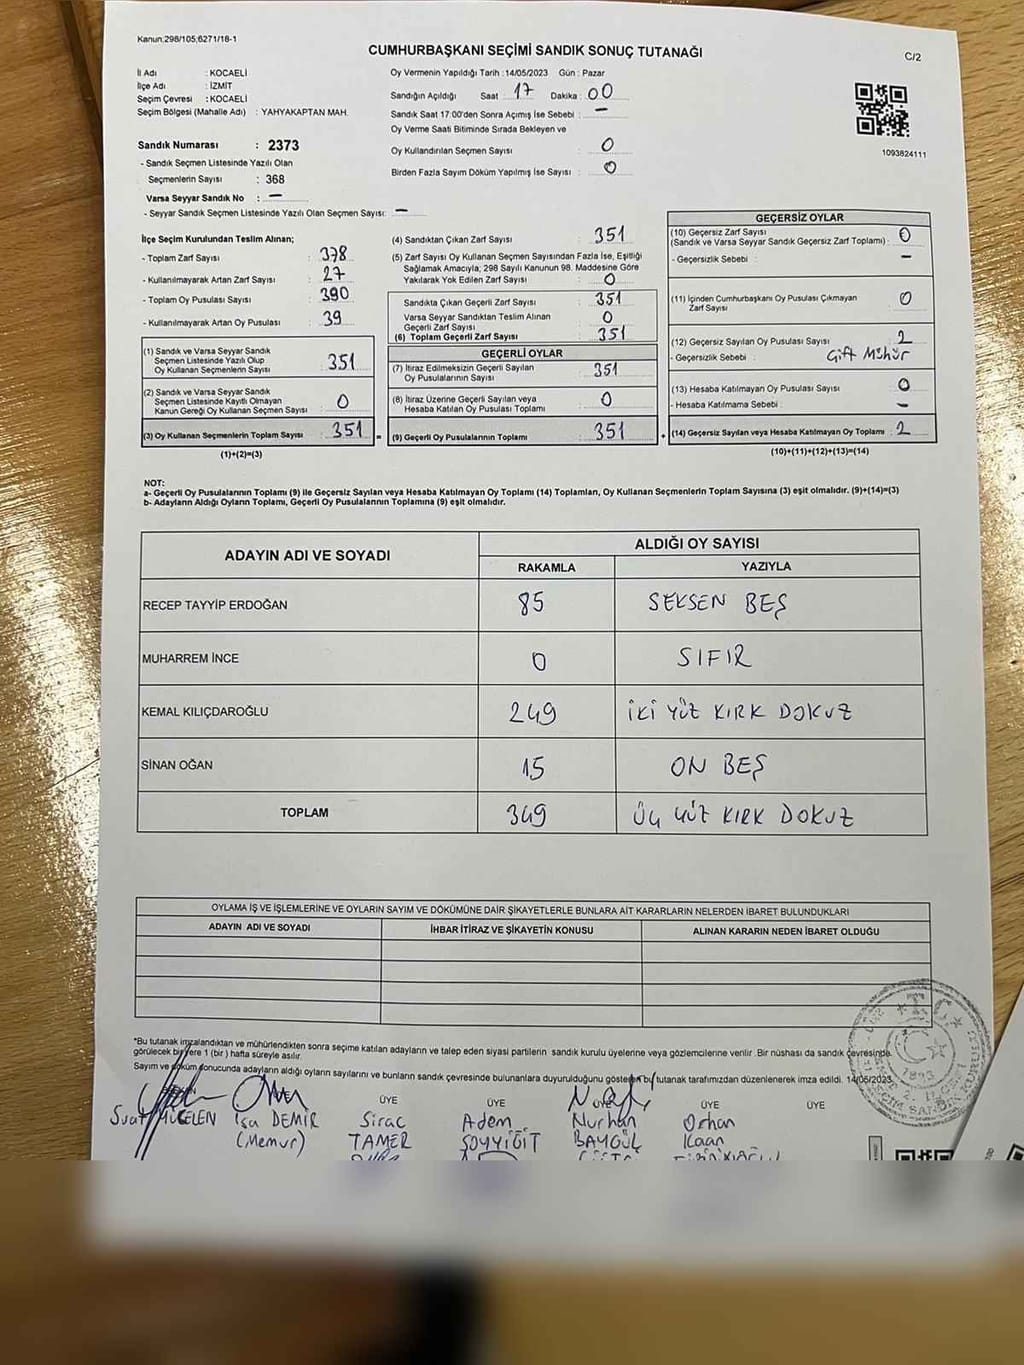 Kanun:298/105;6271/18-1
CUMHURBAŞKANI SEÇİMİ SANDIK SONUÇ TUTANAĞI
C/2
İl Adı : KOCAELİ
İlçe Adı : İZMİT
Seçim Çevresi : KOCAELİ
Seçim Bölgesi (Mahalle Adı) : YAHYAKAPTAN MAH.
Oy Vermenin Yapıldığı Tarih :14/05/2023 Gün : Pazar
Sandığın Açıldığı Saat : 17 Dakika : 00
Sandık Saat 17:00'den Sonra Açımış İse Sebebi : —
Oy Verme Saati Bitiminde Sırada Bekleyen ve
Oy Kullandırılan Seçmen Sayısı : 0
Birden Fazla Sayım Döküm Yapılmış İse Sayısı : 0
1093824111
Sandık Numarası : 2373
- Sandık Seçmen Listesinde Yazılı Olan
Seçmenlerin Sayısı : 368
Varsa Seyyar Sandık No : —
- Seyyar Sandık Seçmen Listesinde Yazılı Olan Seçmen Sayısı: —
İlçe Seçim Kurulundan Teslim Alınan;
- Toplam Zarf Sayısı : 378
- Kullanılmayarak Artan Zarf Sayısı : 27
- Toplam Oy Pusulası Sayısı : 390
- Kullanılmayarak Artan Oy Pusulası : 39
(1) Sandık ve Varsa Seyyar Sandık
Seçmen Listesinde Yazılı Olup
Oy Kullanan Seçmenlerin Sayısı : 351
(2) Sandık ve Varsa Seyyar Sandık
Seçmen Listesinde Kayıtlı Olmayan
Kanun Gereği Oy Kullanan Seçmen Sayısı : 0
(3) Oy Kullanan Seçmenlerin Toplam Sayısı : 351 =
(1)+(2)=(3)
(4) Sandıktan Çıkan Zarf Sayısı : 351
(5) Zarf Sayısı Oy Kullanan Seçmen Sayısından Fazla İse, Eşitliği
Sağlamak Amacıyla, 298 Sayılı Kanunun 98. Maddesine Göre
Yakılarak Yok Edilen Zarf Sayısı : 0
Sandıkta Çıkan Geçerli Zarf Sayısı : 351
Varsa Seyyar Sandıktan Teslim Alınan
Geçerli Zarf Sayısı : 0
(6) Toplam Geçerli Zarf Sayısı : 351
GEÇERLİ OYLAR
(7) İtiraz Edilmeksizin Geçerli Sayılan
Oy Pusulalarının Sayısı : 351
(8) İtiraz Üzerine Geçerli Sayılan veya
Hesaba Katılan Oy Pusulası Toplamı : 0
(9) Geçerli Oy Pusulalarının Toplamı : 351 +
GEÇERSİZ OYLAR
(10) Geçersiz Zarf Sayısı
(Sandık ve Varsa Seyyar Sandık Geçersiz Zarf Toplamı) : 0
- Geçersizlik Sebebi : —
(11) İçinden Cumhurbaşkanı Oy Pusulası Çıkmayan
Zarf Sayısı : 0
(12) Geçersiz Sayılan Oy Pusulası Sayısı : 2
- Geçersizlik Sebebi : Çift Mühür
(13) Hesaba Katılmayan Oy Pusulası Sayısı : 0
- Hesaba Katılmama Sebebi : —
(14) Geçersiz Sayılan veya Hesaba Katılmayan Oy Toplamı : 2
(10)+(11)+(12)+(13)=(14)
NOT:
a- Geçerli Oy Pusulalarının Toplamı (9) ile Geçersiz Sayılan veya Hesaba Katılmayan Oy Toplamı (14) Toplamları, Oy Kullanan Seçmenlerin Toplam Sayısına (3) eşit olmalıdır. (9)+(14)=(3)
b- Adayların Aldığı Oyların Toplamı, Geçerli Oy Pusulalarının Toplamına (9) eşit olmalıdır.
ADAYIN ADI VE SOYADI
ALDIĞI OY SAYISI
RAKAMLA YAZIYLA
RECEP TAYYİP ERDOĞAN 85 SEKSEN BEŞ
MUHARREM İNCE 0 SIFIR
KEMAL KILIÇDAROĞLU 249 İKİ YÜZ KIRK DOKUZ
SİNAN OĞAN 15 ON BEŞ
TOPLAM 349 ÜÇ YÜZ KIRK DOKUZ
OYLAMA İŞ VE İŞLEMLERİNE VE OYLARIN SAYIM VE DÖKÜMÜNE DAİR ŞİKAYETLERLE BUNLARA AİT KARARLARIN NELERDEN İBARET BULUNDUKLARI
ADAYIN ADI VE SOYADI İHBAR İTİRAZ VE ŞİKAYETİN KONUSU ALINAN KARARIN NEDEN İBARET OLDUĞU
*Bu tutanak imzalandıktan ve mühürlendikten sonra seçime katılan adayların ve talep eden siyasi partilerin sandık kurulu üyelerine veya gözlemcilerine verilir. Bir nüshası da sandık çevresinde
görülecek bir yere 1 (bir) hafta süreyle asılır.
Sayım ve döküm sonucunda adayların aldığı oyların sayılarını ve bunların sandık çevresinde bulunanlara duyurulduğunu gösteren bu tutanak tarafımızdan düzenlenerek imza edildi. 14/05/2023
ÜYE ÜYE ÜYE ÜYE ÜYE
Suat MÜGELEN İsa DEMİR Sirac Adem Nurhan Orhan
(Memur) TAMER SOYYİĞİT BAYGÜL Kaan
T.C.